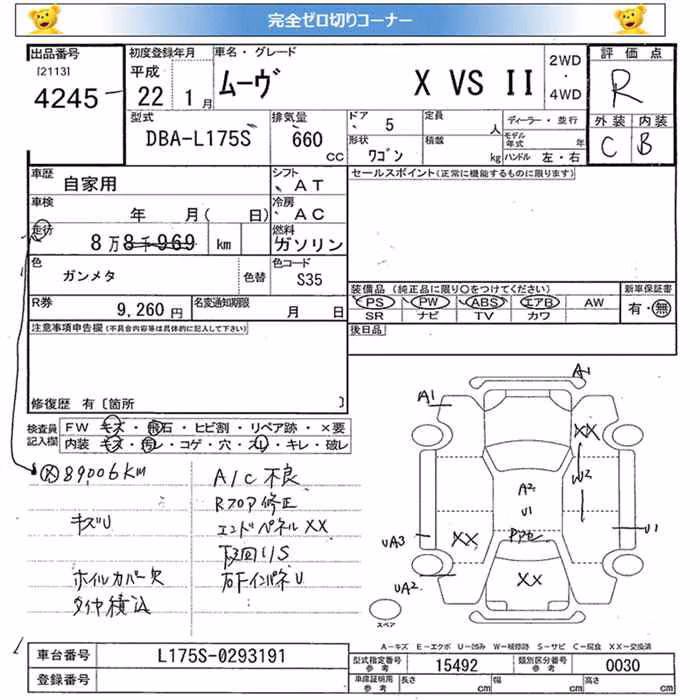 完全ゼロ切りコーナー
出品番号
[2113]
4245
初度登録年月
平成
22 1月
車名・グレード
ムーヴ X VS II
2WD
・
4WD
評価点
R
外装 内装
C B
型式
DBA-L175S
排気量
660
CC
ドア
5
形状
ワゴン
定員
人
積載
kg
ディーラー・並行
モデル
年式 年
ハンドル 左・右
車歴
自家用
シフト
AT
車検
年 月( 日)
冷房
AC
走行
8万8千969 km
燃料
ガソリン
色
ガンメタ
色替
色コード
S35
R券
9,260円
名変通知期限
月 日
セールスポイント(正常に機能するものに限ります)
装備品(純正品に限り○をつけてください)
PS PW ABS エアB AW
SR ナビ TV カワ
新車保証書
有・無
後日品
注意事項申告欄(不具合内容等は具体的に記入して下さい)
修復歴 有〔箇所 〕
検査員
記入欄
FW キズ・飛石・ヒビ割・リペア跡・×要
内装 キズ・汚レ・コゲ・穴・スレ・キレ・破レ
89,006KM
キズU
ホイルカバー欠
タイヤ積込
A/C 不良
Rフロア修正
エンドパネルXX
下回りS
右FインパネU
A1
A1
XX
W2
A2
U1
UA3
XX
U1
UA2
XX
スペア
A-キズ E-エクボ U-凹み W-補修跡 S-サビ C-腐食 XX-交換済
車台番号
L175S-0293191
登録番号
型式指定番号
参考
15492
類別区分番号
参考
0030
車庫証明用
参考
長さ cm
幅 cm
高さ cm